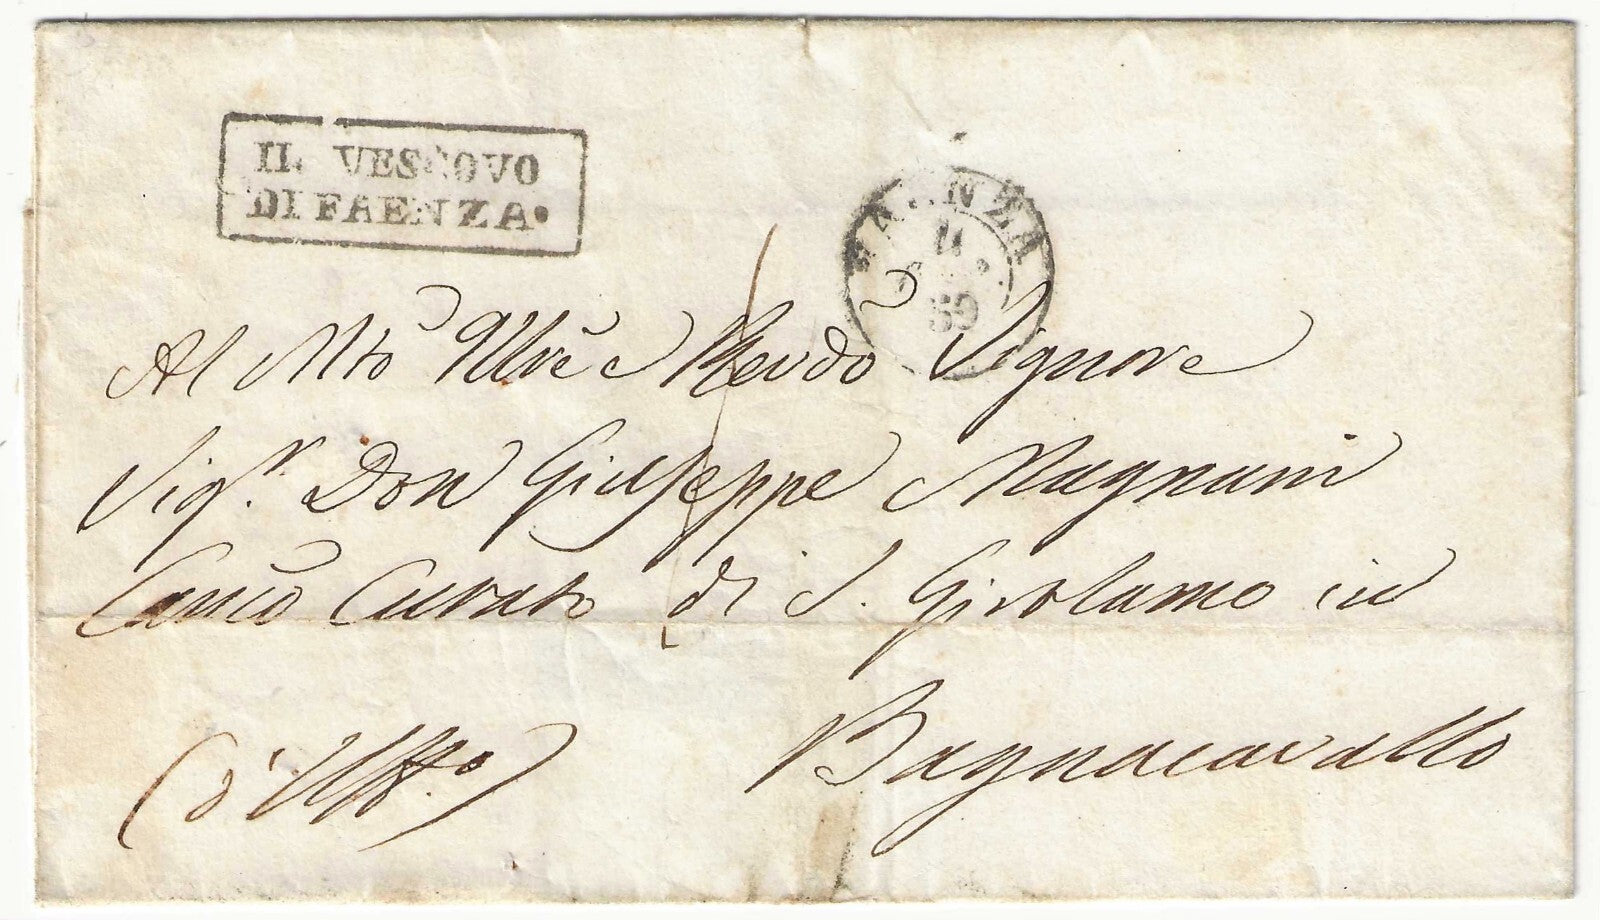 IL VESCOVO
DI FAENZA.
FAENZA
11
59
Al Mto Illre e Revdo Signore
Sigr. Don Giuseppe Magnani
Canco Curato di S. Girolamo in
Bagnacavallo
(d'Uffo.)